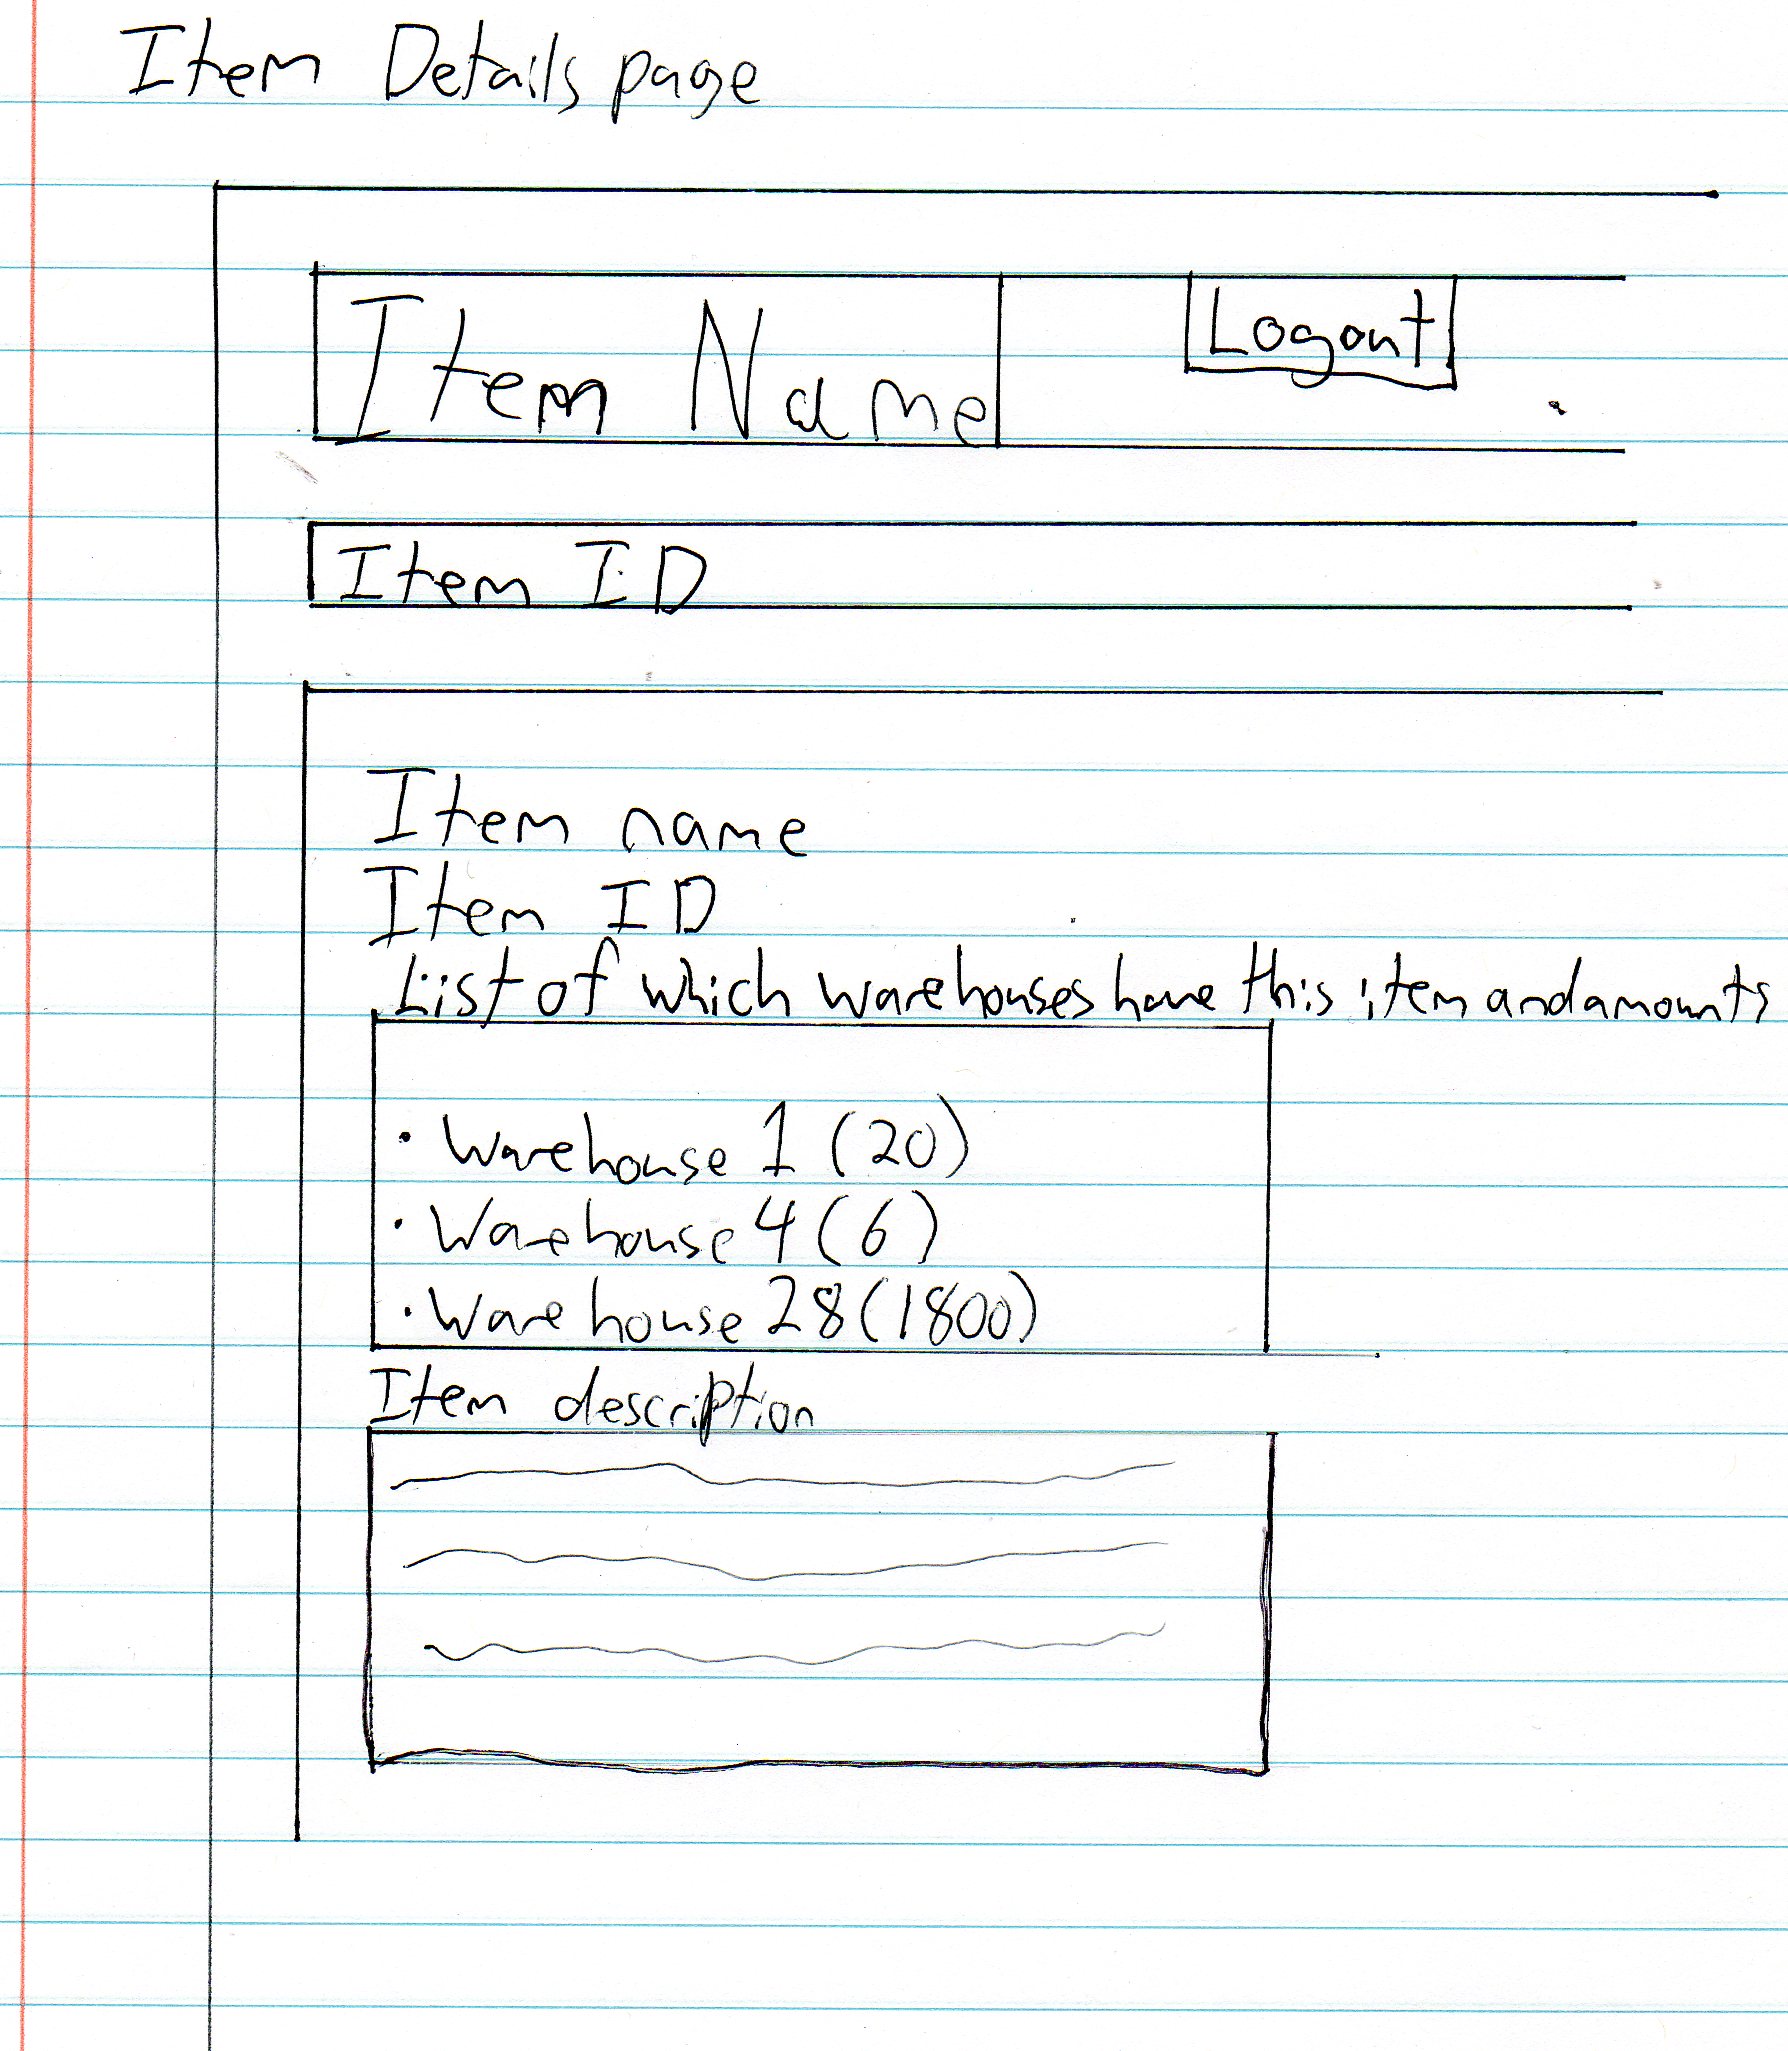 Item Details page
Item Name
Logout
Item ID
Item name
Item ID
List of which warehouses have this item and amounts
• Warehouse 1 (20)
• Warehouse 4 (6)
• Warehouse 28 (1800)
Item description